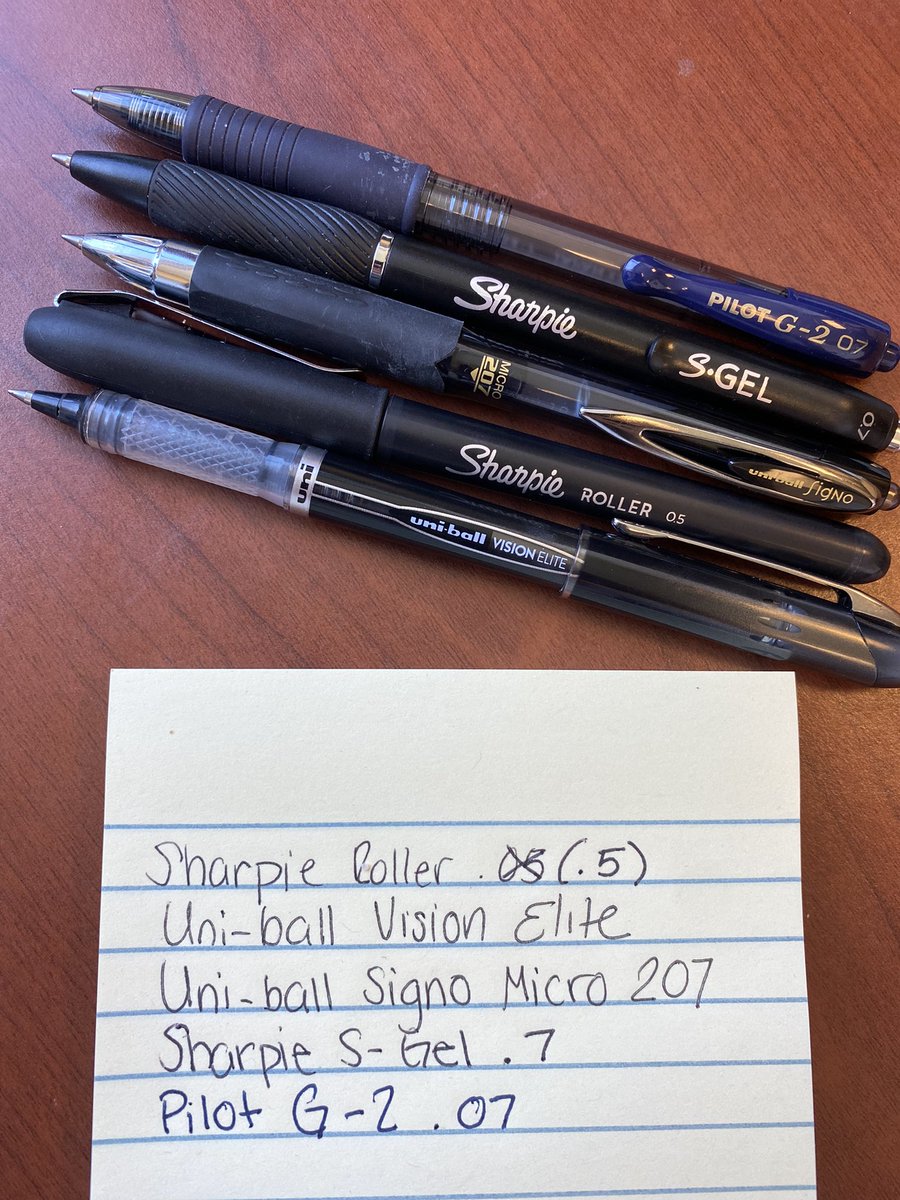 PILOT G-2 07
Sharpie S·GEL 0.7
MICRO 207
uni-ball Signo
Sharpie ROLLER 0.5
uni
uni-ball VISION ELITE
Sharpie Roller .05 (.5)
Uni-ball Vision Elite
Uni-ball Signo Micro 207
Sharpie S-Gel .7
Pilot G-2 .07